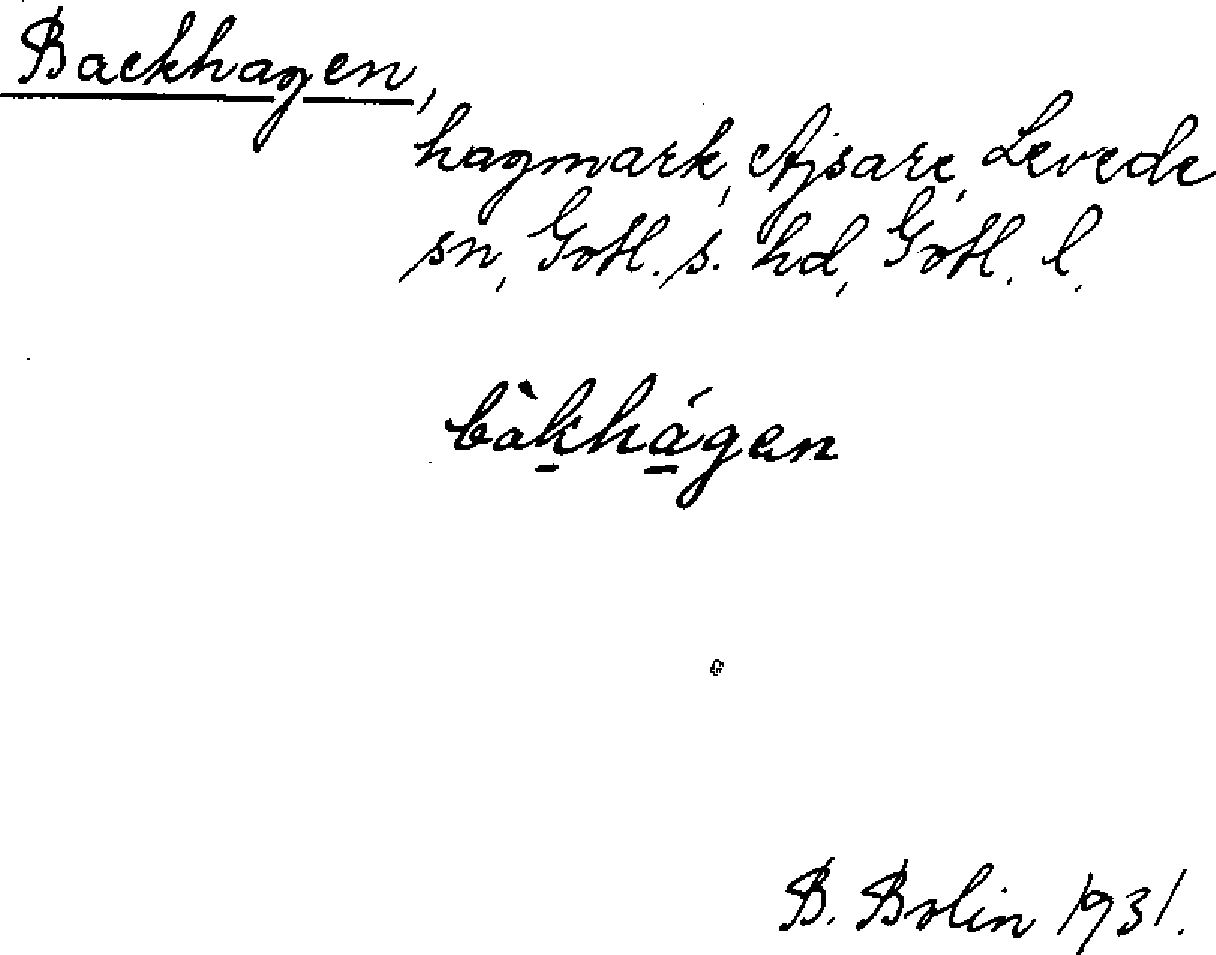 Backhagen,
hagmark, Ajsare, Levede
sn, Gotl. s. hd, Gotl. l.
bàk̲há̲gan
B. Bolin 1931.